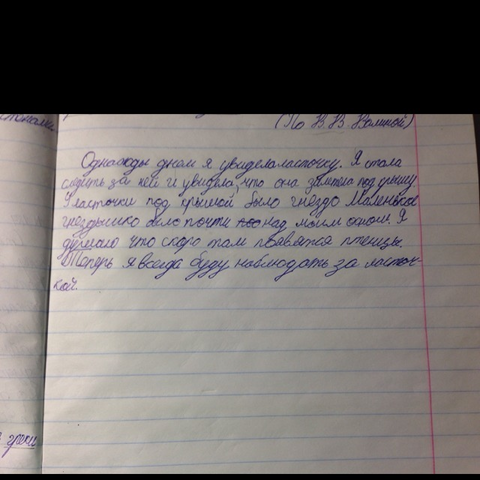 (По В. В. Волиной)
Однажды днем я увидела ласточку. Я стала
следить за ней и увидела, что она залетела под крышу.
У ласточки под крышой было гнёздо. Маленькое
гнёздышко было почти над моим окном. Я
думаю что скоро там появятся птенцы.
Теперь я всегда буду наблюдать за ласточ-
кой.
греки